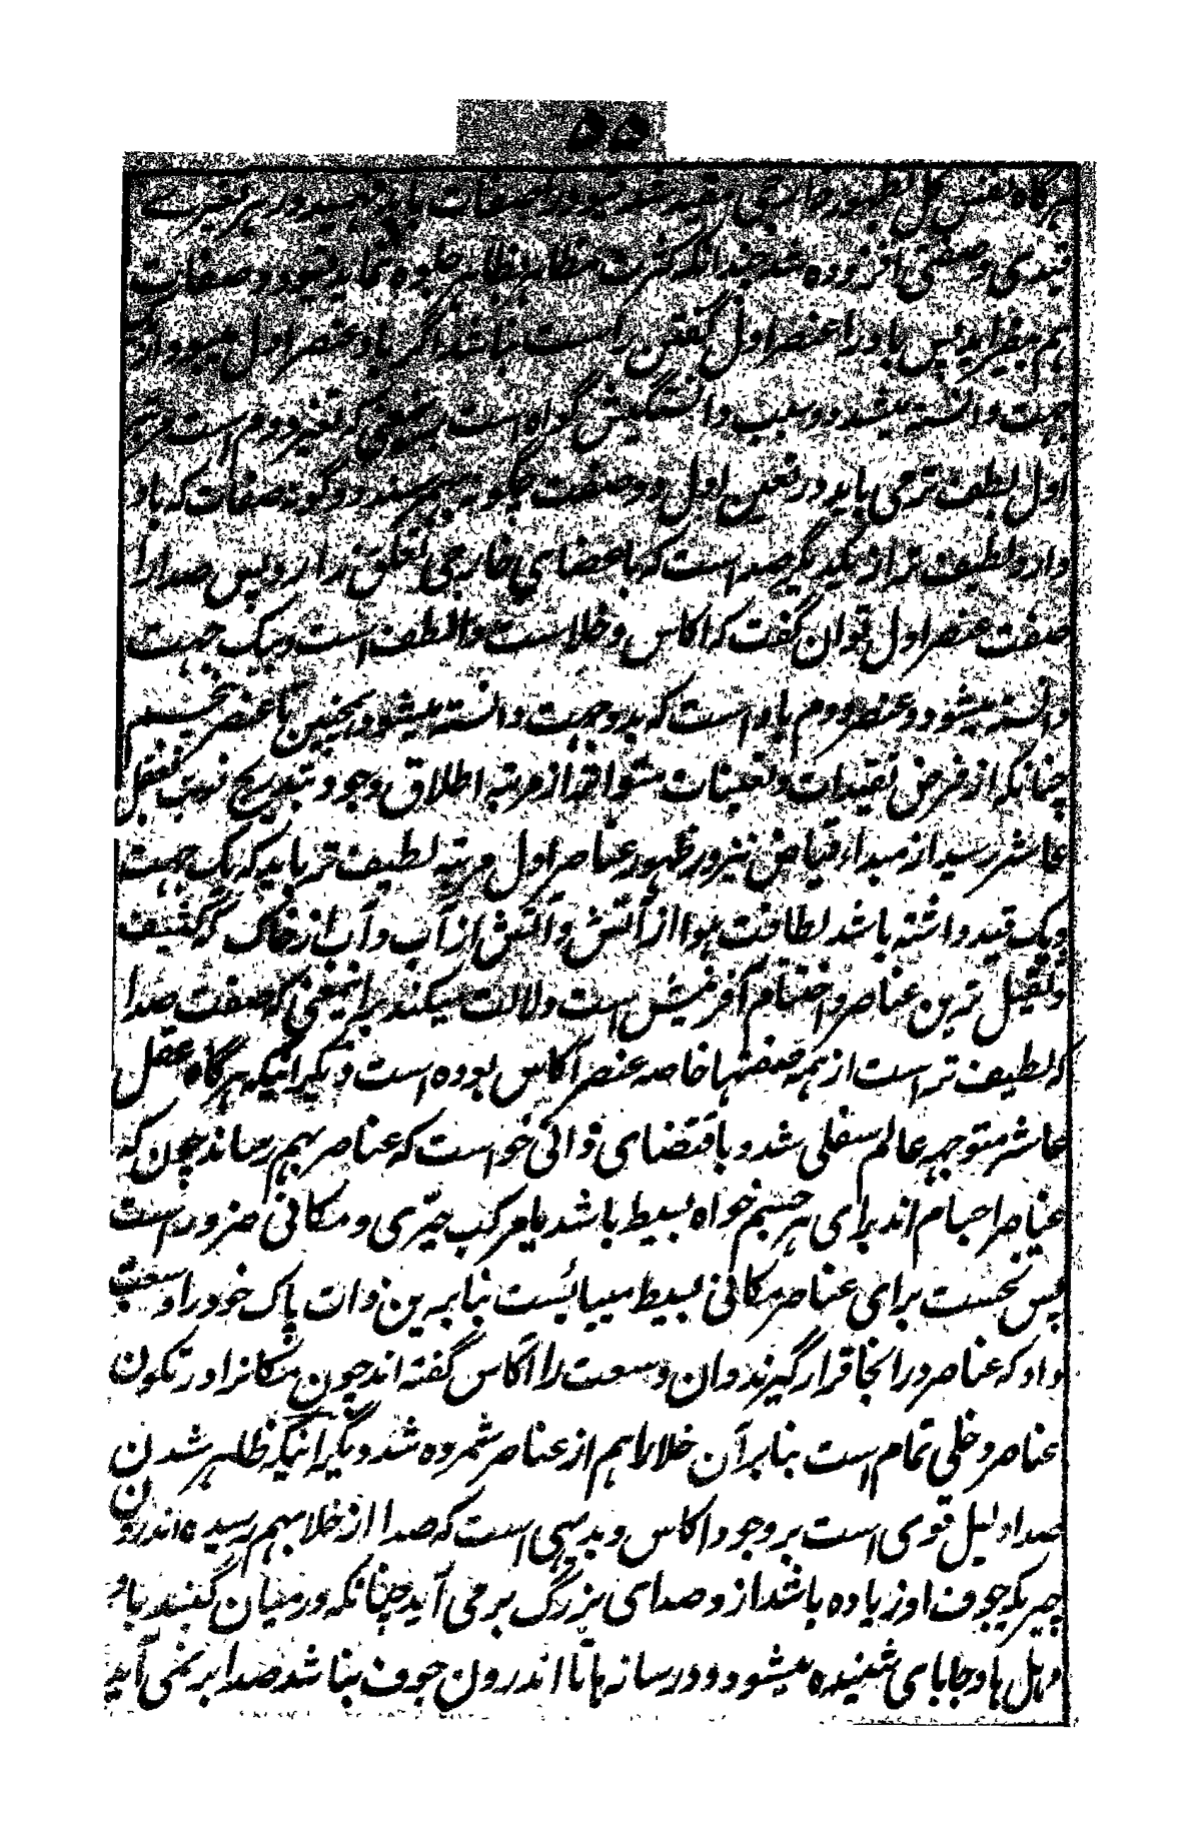 ۵۵
هرگاه نفس کل بظهور خارجی مقید شد قیود و صفات باید فهمید و در هر تغیرے
قیدی و صفتی افزوده شد چندانکه کثرت مظاهر بظاهر جلوه نماید قیود و صفات
هم بیفزاید پس باد را عنصر اول گفتن راست نباشد اگر باد عنصر اول میبود از
جهت دانسته میشد دو سبب دانستگیش گواه است برینمعنی که تغیر دوم است
اول لطیف تر می باید در تعین اول دو صفت چگونه بهم رسند دو گونه صفات که باد
دارد لطیف تر از یکدیگر صد است که باعضای خارجی تعلق ندارد پس صدا را
صفت عنصر اول توان گفت که اکاس و خلاست و الطف است و بیک جهت
دانسته میشود و عنصر دوم باد است که بدو جهت دانسته میشود همچنین تا عنصر پنجم
چنانکه از فرض تقیدات و تعینات متوافقه از مرتبه اطلاق وجود بتدریج نوبت بعقل
عاشر رسید از مبداء فیاض نیز در ظهور عناصر اول مرتبه لطیف تر باید که یک جهت
و یک قید داشته باشد لطافت هوا از آتش و آتش از آب و آب از خاک که کثیف
و ثقیل ترین عناصر و اختتام آفرینش است دلالت میکند براینمعنی که صفت صدا
که لطیف تر است از همه صفتها خاصه عنصر آکاس بوده است دیگر اینکه هرگاه عقل
عاشر متوجه عالم سفلی شد و باقتضای ذاتی خواست که عناصر بهم رساند چون که
عناصر اجسام اند برای هر جسم خواه بسیط باشد یا مرکب حیّزی و مکانی ضرور است
پس نخست برای عناصر مکانی بسیط میبایست بنا برین ذات پاک خود را وسعت
داد که عناصر در انجا قرار گیرند و ان وسعت را اکاس گفته اند چون مکانرا در تکون
عناصر دخلی تمام است بنابر آن خلا را هم از عناصر شمرده شد دیگر اینکه ظاهر شدن
صدا دلیل قوی است بر وجود اکاس و بدیهی است که صدا از خلا بهم رسیده اندرون
چیزیکه جوف او زیاده باشد ازو صدای بزرگ برمی آید چنانکه در میان گنبد
و دهل ها و جابای شنیده میشود و در رسانه ها تا اندرون جوف نباشد صدا بر نمی آید